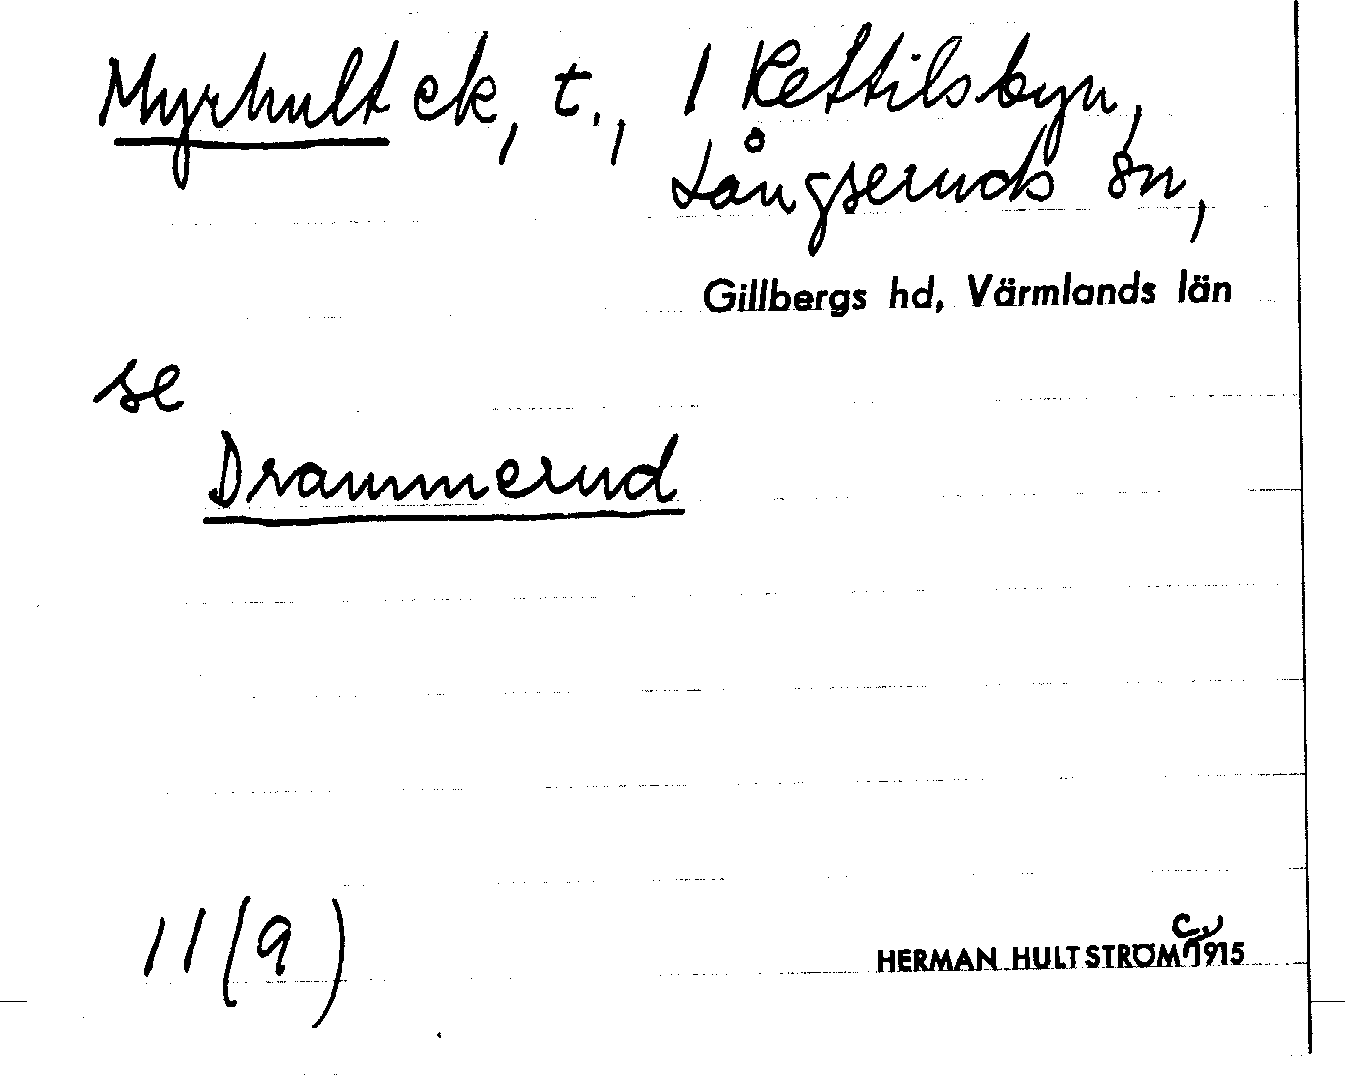 Myrhult ek, t., 1 Kettilsbyn,
Långseruds sn,
Gillbergs hd, Värmlands län
se
Drammerud
11(9)
HERMAN HULTSTRÖM c. 1915